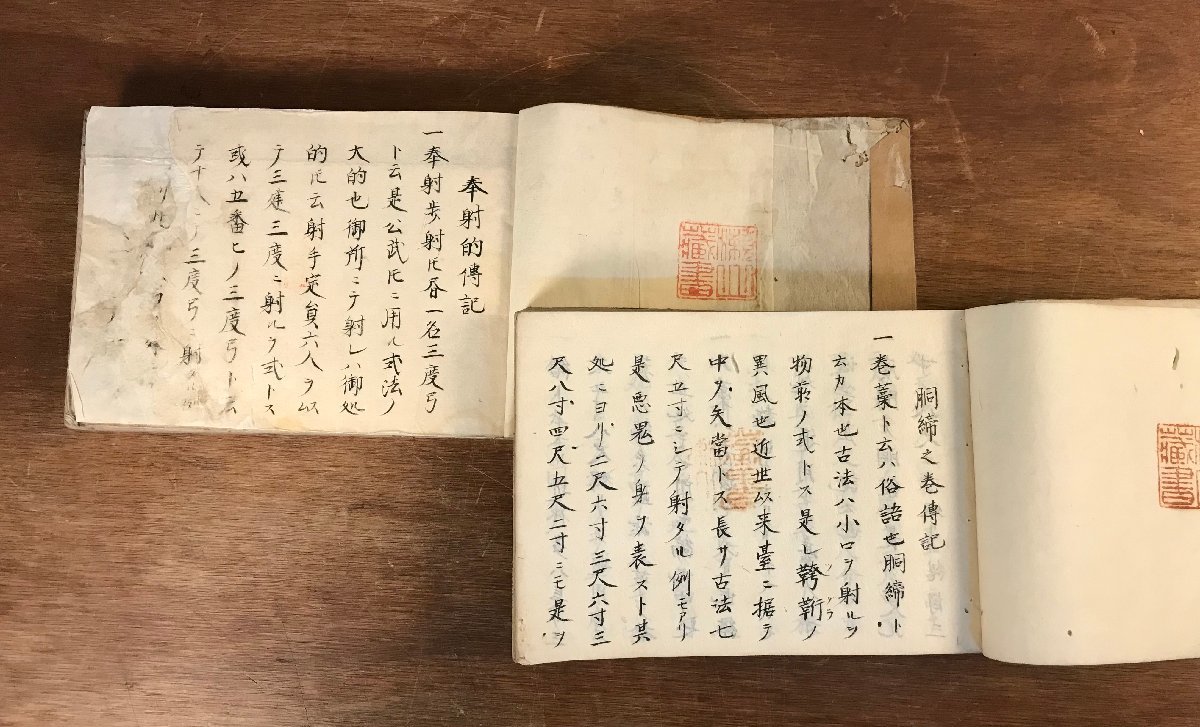 奉射的傳記
一奉射歩射𪜈呑一名三度弓
ト云是公武𪜈ニ用ル式法ノ
大的也御所ニテ射レハ御処
的𪜈云射手定員六人ヲ以
テ三連三度ニ射ルヲ式トス
或ハ五番ヒノ三度弓ト云
テ十人ニテ三度弓ニ射ル
藏書
胴締之巻傳記
一巻藁ト云ハ俗語也胴締ト
云カ本也古法ハ小口ヲ射ルヲ
物前ノ式トス是レ鞍䩭ノ
異風也近世以来臺ニ据テ
中タ矢當トス長サ古法七
尺五寸ニシテ射タル例モアリ
是悪鬼ノ身ヲ表スト其
処ニヨリ二尺六寸三尺六寸三
尺八寸四尺五尺二寸ニモ是ヲ
藏書